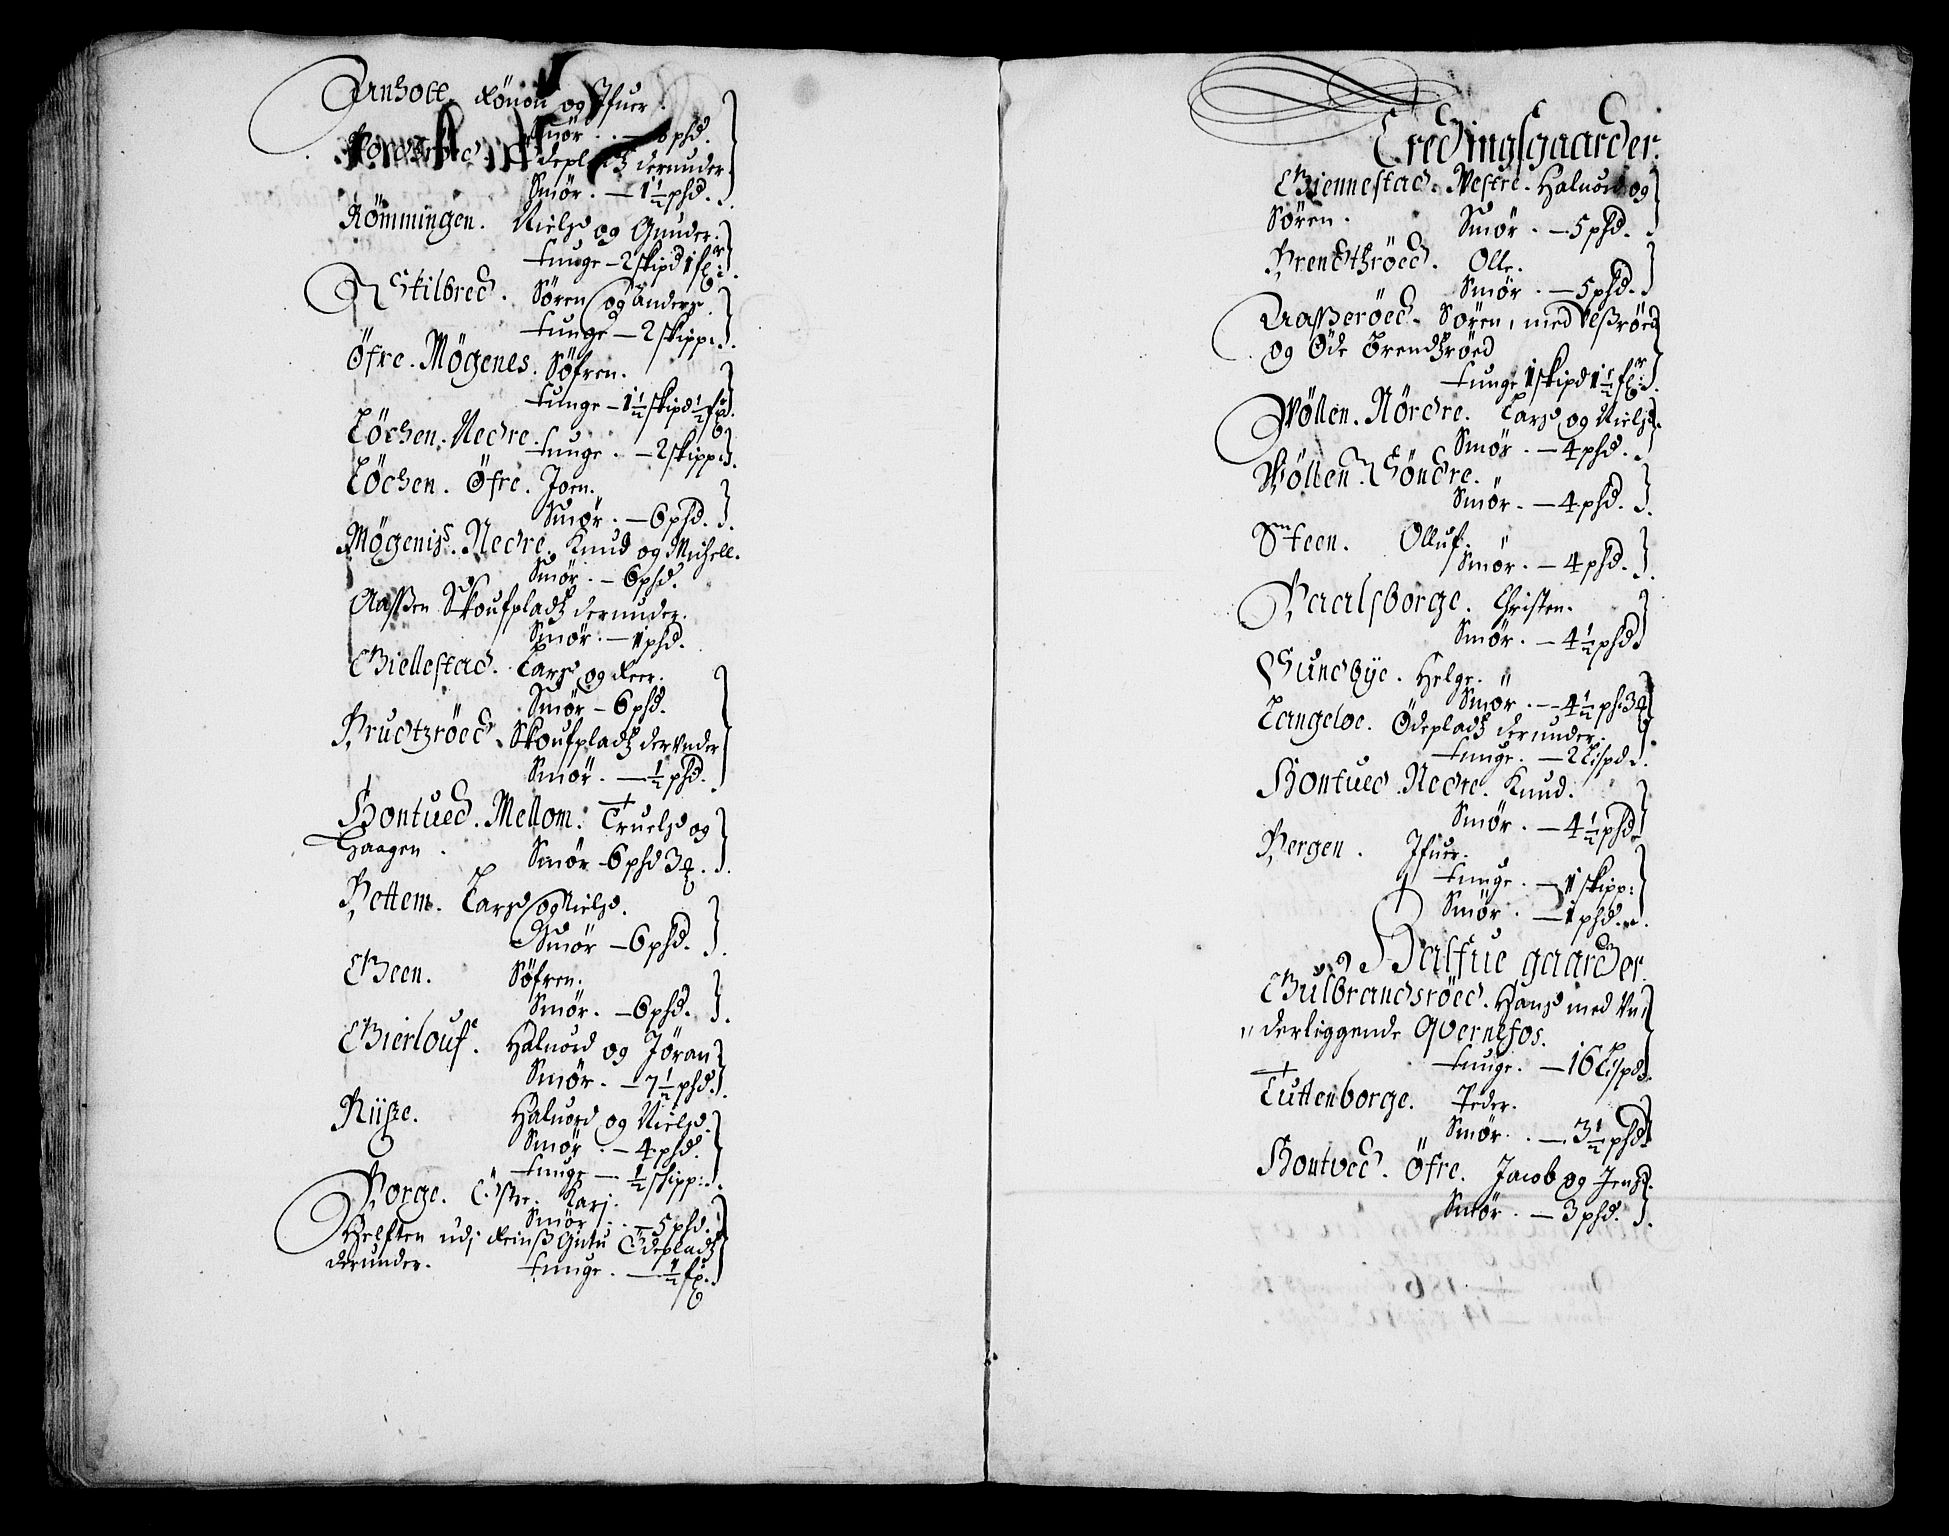 Arnholt. Rönou og Ifuer.
Smör. — phd.
Ödepladtz derunder
Smör. — 1½ phd.
Römmingen. Nielss og Gunder.
tunge — 2 skipd 1 fr
Skilbred. Sören og Anders.
tunge — 2 skipp:
Öfre. Mögenes. Söfren.
tunge — 1½ skipd ½ fr
Löchen. Nedre.
tunge. — 2 skipp:
Löchen. Öfre. Joen.
Smör. — 6 phd.
Mögeniss. Nedre. Knud og Michell.
Smör. — 6 phd.
Aassen Skoufpladtz derunder.
Smör. — 1 phd.
Giellestad. Larss og Peer.
Smör — 6 phd.
Prudtzröed. Skoufpladtz dervnder
Smör. — ½ phd.
Hontued. Mellom. Truelss og
Haagen. Smör — 6 phd 3
Pettem. Larss og Nielss.
Smör — 6 phd.
Geen. Söfren.
Smör. — 6 phd.
Gierlouf. Haluord og Jöran
Smör. — 7½ phd.
Riisse. Haluord og Nielss.
Smör. — 4 phd.
tunge — ½ skipp:
Borge. Östre. Karj.
Smör — 5 phd.
Helften udj Ödepladtz
derunder. tunge. — ½ fr
Tredingsgaarder.
Giennestad. Vestre. Haluord og
Sören. Smör. — 5 phd.
Brendthröed. Olle.
Smör. — 5 phd.
Aasseröed. Sören, med Vessröed
og Öde Brendtzröed
tunge 1 skipd 1½ fr
Wöllen. Nördre. Larss og Nielss.
Smör. — 4 phd.
Wöllen. Söndre.
Smör. — 4 phd.
Steen. Olluf.
Smör. — 4 phd.
Paalsborge. Christen.
Smör. — 4½ phd
Sundbÿe. Helge.
Smör. — 4½ phd 3
Langeloe. Ödepladtz derunder.
tunge. — 2 Lispd.
Hontued. Nedre. Knud.
Smör. — 4½ phd
Bergen. Ifuer.
tunge. — 1 skipp:
Smör. — 1 phd.
Halfue gaarder.
Gulbrandsröed. Hans med Vn,
,, derliggende Qvernefos.
tunge. — 16 Lispd.
Tuttenborge. Peder.
Smör. — 3½ phd
Hontved. Öfre. Jacob og Jenss.
Smör. — 3 phd.